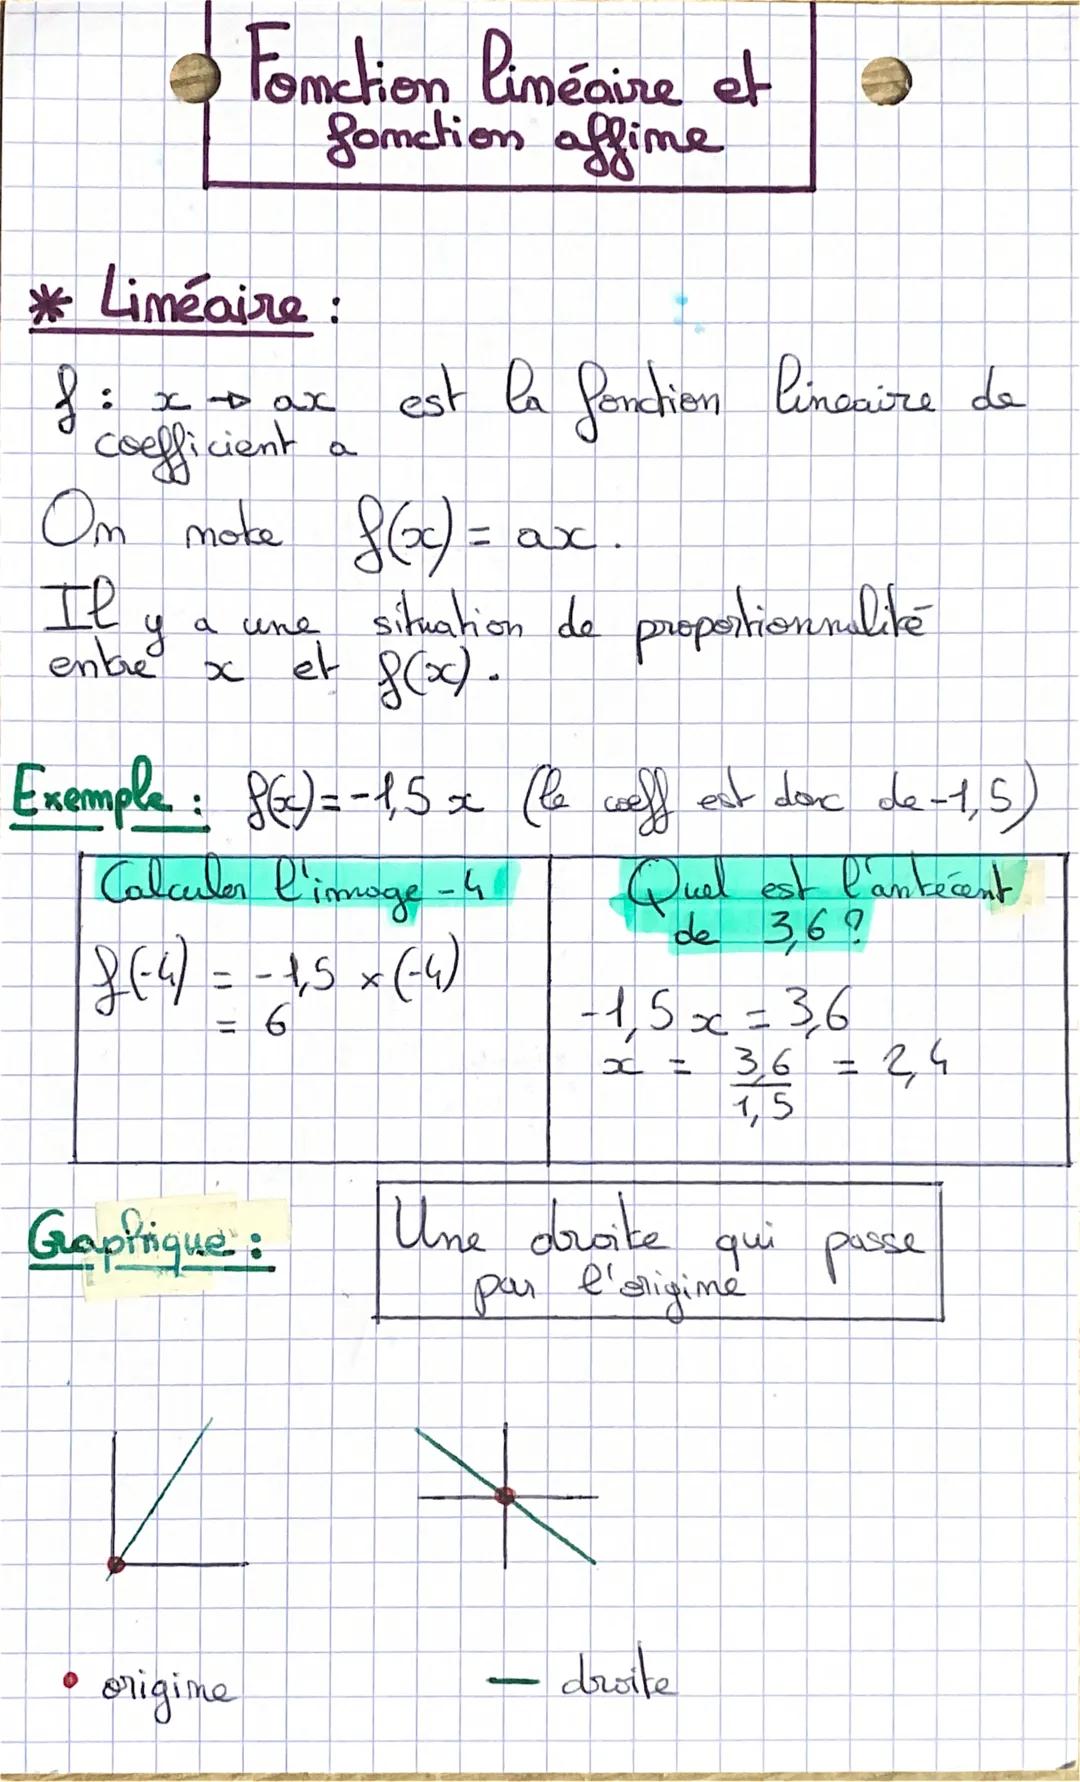 Fonction linéaire et
fonction affine
* Linéaire :
f : x → ax est la fonction lineaire de
coefficient a
On note f(x) = ax.
Il y a une situation de proportionnalité
entre x et f(x).
Exemple : f(x) = -1,5 x (le coeff est donc de -1,5)
Calculer l'image -4
f(-4) = -1,5 × (-4)
= 6
Quel est l'antécént
de 3,6 ?
-1,5 x = 3,6
x = 3,6/1,5 = 2,4
Graphique :
Une droite qui passe
par l'origine
• origine
— droite